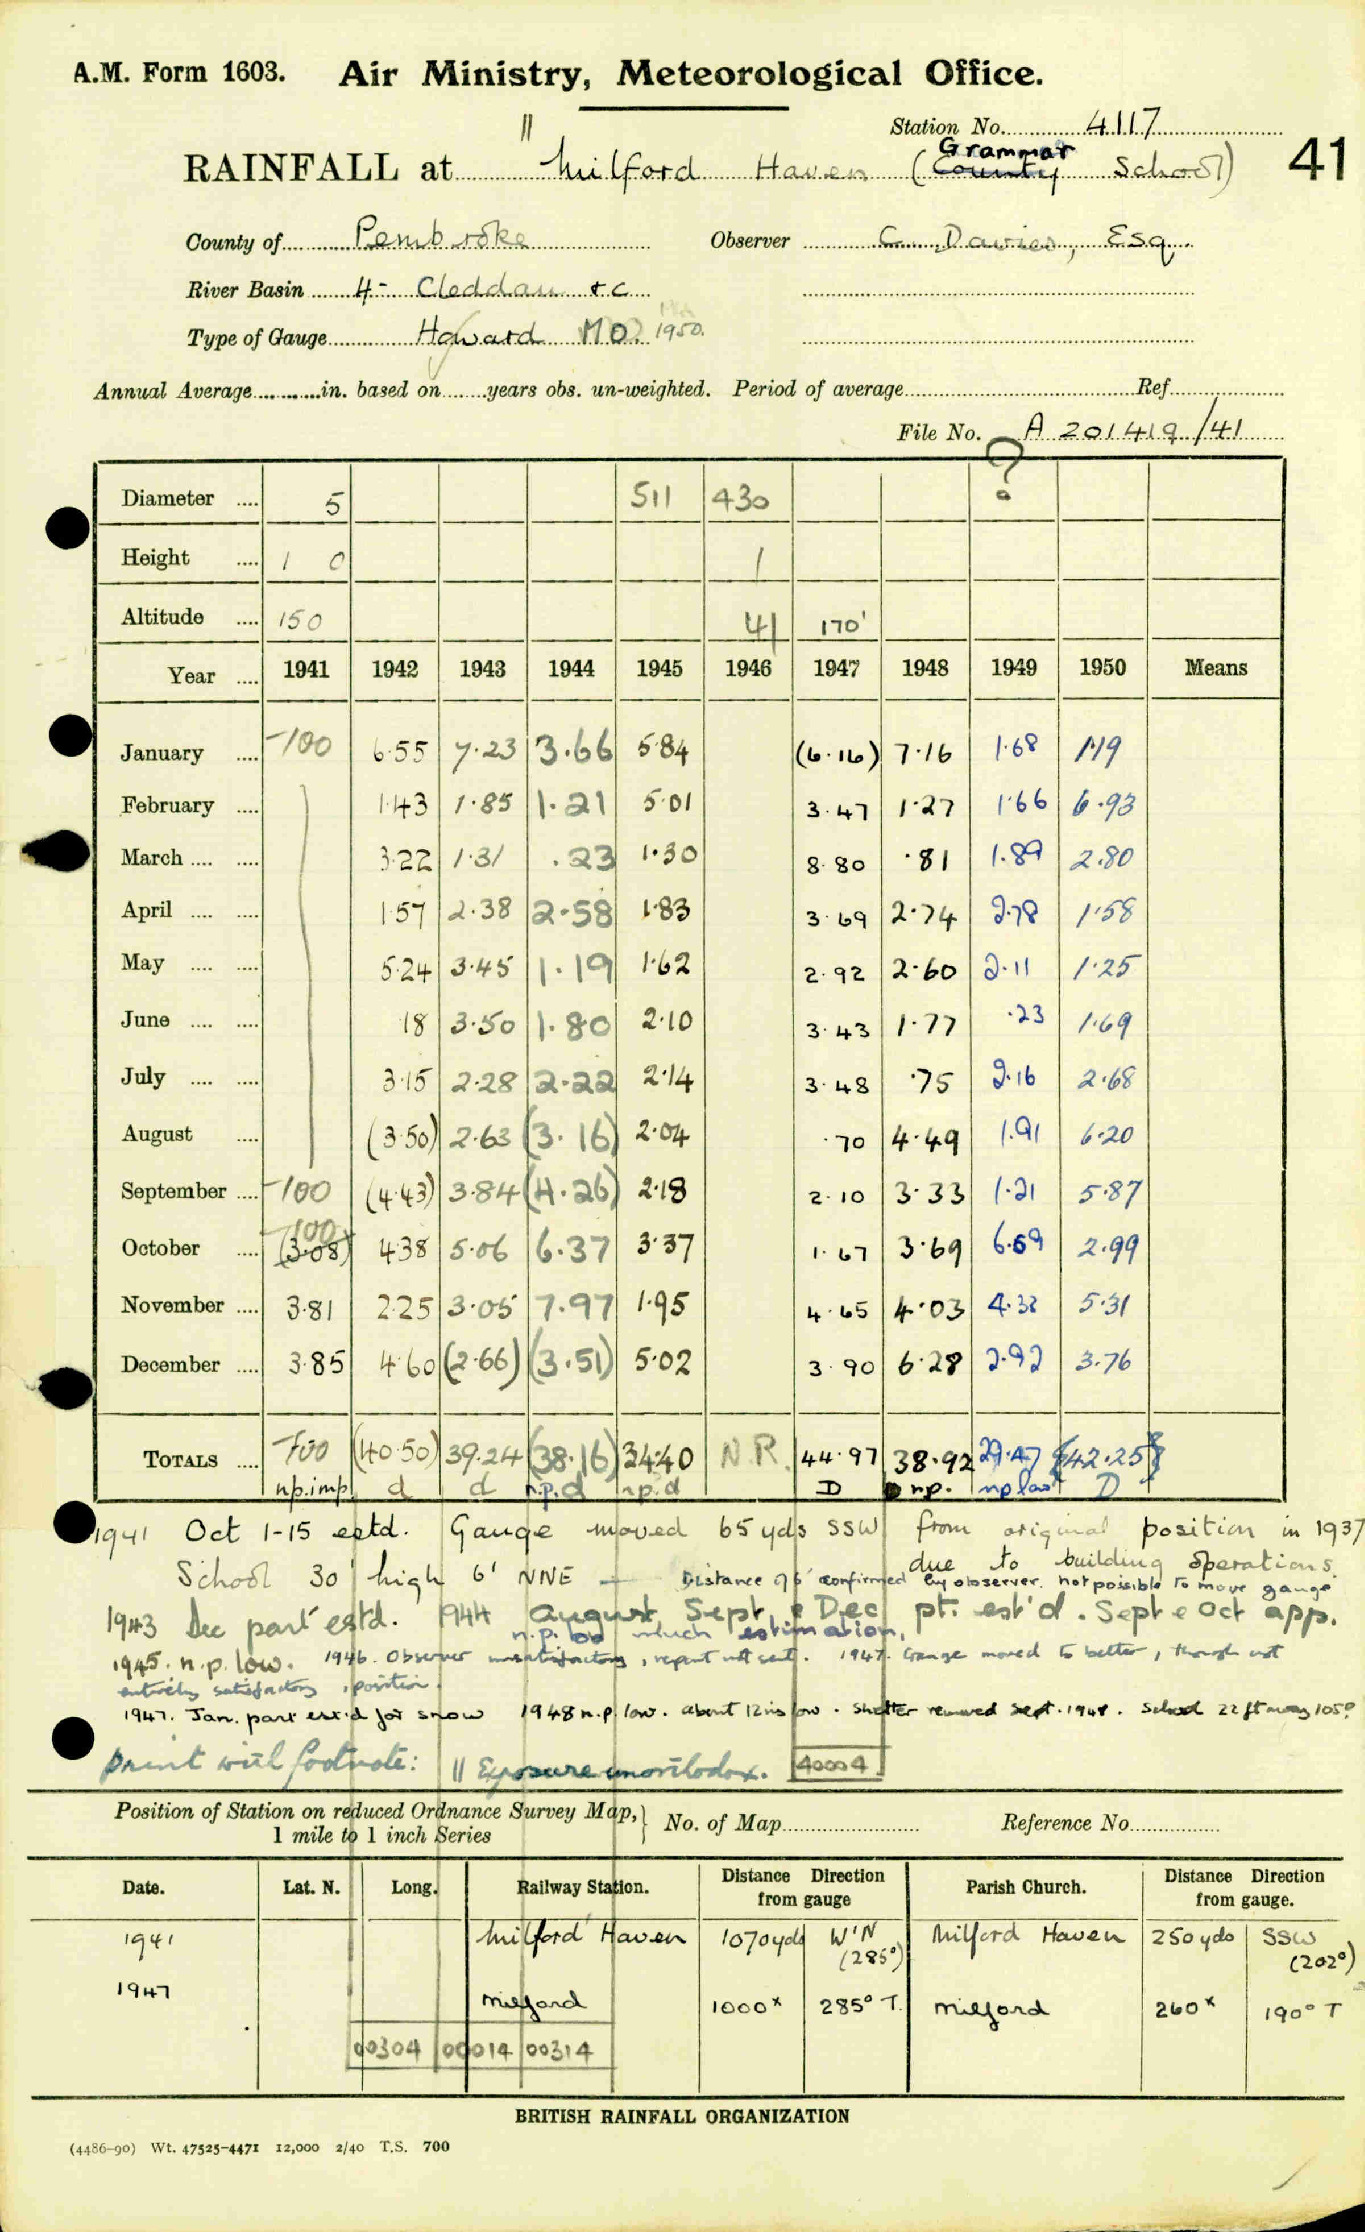 A.M. Form 1603. Air Ministry, Meteorological Office.
Station No. 4117
41
RAINFALL at " Milford Haven (County Grammar School)
County of Pembroke Observer C. Davies, Esq.
River Basin 4- Cleddau &c
Type of Gauge Howard MO. 1950.
Annual Average in. based on years obs. un-weighted. Period of average Ref.
File No. A 201419/41
Diameter 5 511 430 ?
Height 1 0 1
Altitude 150 41 170'
Year 1941 1942 1943 1944 1945 1946 1947 1948 1949 1950 Means
January -100 6.55 7.23 3.66 5.84 (6.16) 7.16 1.68 1.19
February 1.43 1.85 1.21 5.01 3.47 1.27 1.66 6.93
March 3.22 1.31 .23 1.30 8.80 .81 1.89 2.80
April 1.57 2.38 2.58 1.83 3.69 2.74 2.78 1.58
May 5.24 3.45 1.19 1.62 2.92 2.60 2.11 1.25
June 18 3.50 1.80 2.10 3.43 1.77 .23 1.69
July 3.15 2.28 2.22 2.14 3.48 .75 2.16 2.68
August (3.50) 2.63 (3.16) 2.04 .70 4.49 1.91 6.20
September -100 (4.43) 3.84 (4.26) 2.18 2.10 3.33 1.21 5.87
October -100 (3.08) 4.38 5.06 6.37 3.37 1.67 3.69 6.59 2.99
November 3.81 2.25 3.05 7.97 1.95 4.65 4.03 4.32 5.31
December 3.85 4.60 (2.66) (3.51) 5.02 3.90 6.28 2.92 3.76
TOTALS -700 (40.50) 39.24 (38.16) 34.40 N.R. 44.97 38.92 29.47 42.25
n.p.imp. d d n.p.d n.p.d D n.p. n.p low D
1941 Oct 1-15 estd. Gauge moved 65 yds SSW from original position in 1937
due to building operations.
School 30' high 6' NNE — Distance of 6' confirmed by observer. Not possible to move gauge
1943 Dec part estd. 1944 August, Sept, & Dec pt. est'd. Sept & Oct app.
n.p. too much estimation.
1945. n.p. low. 1946. Observer unsatisfactory, report not sent. 1947. Gauge moved to better, though not
entirely satisfactory, position.
1947. Jan. part est'd for snow 1948 n.p. low. about 12 ins low. Shelter removed Sept. 1948. School 22 ft away 105°
Print with footnote: || Exposure unorthodox. 40004
Position of Station on reduced Ordnance Survey Map, 1 mile to 1 inch Series } No. of Map Reference No.
Date. Lat. N. Long. Railway Station. Distance Direction from gauge Parish Church. Distance Direction from gauge.
1941 Milford Haven 1070 yds W'N (285°) Milford Haven 250 yds SSW (202°)
1947 Milford 1000x 285° T. Milford 260x 190° T
00304 00014 00314
BRITISH RAINFALL ORGANIZATION
(4486-90) Wt. 47525-4471 12,000 2/40 T.S. 700